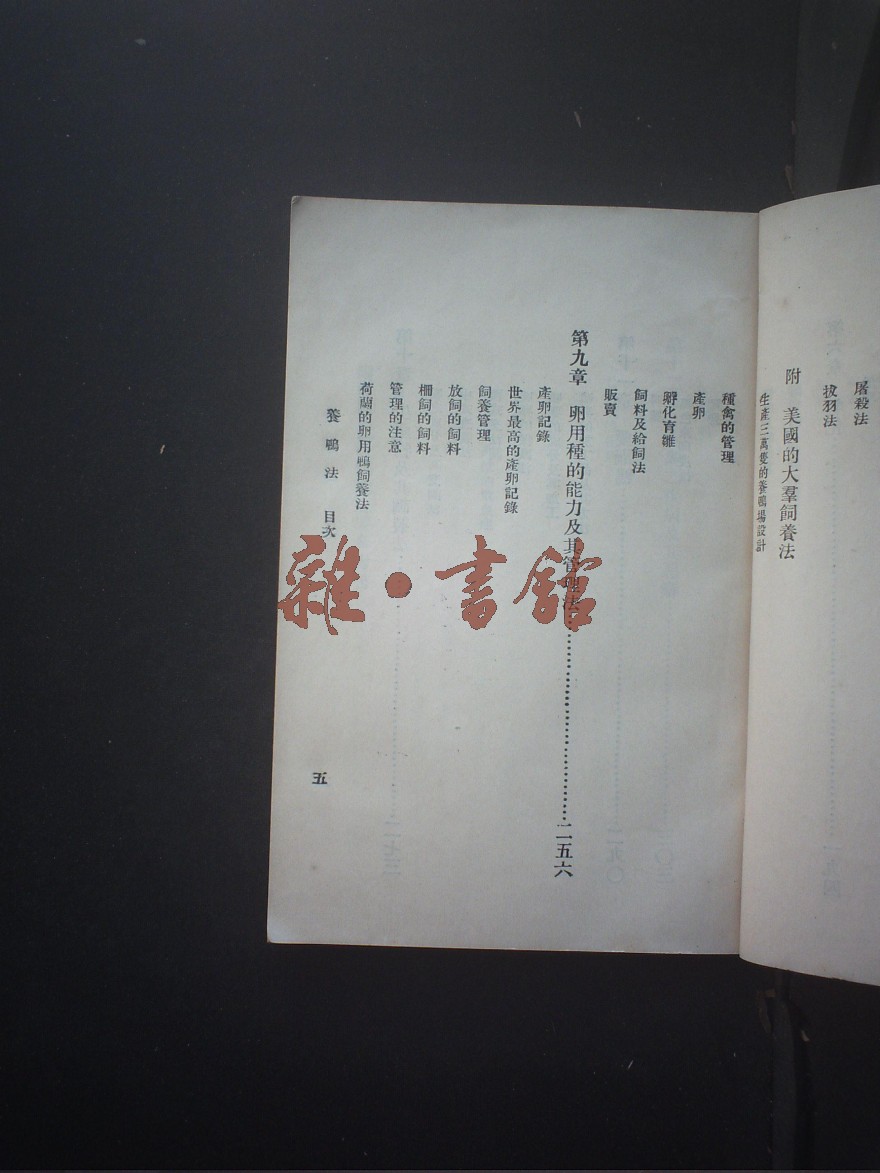 屠殺法
拔羽法
附　美國的大羣飼養法
生產三萬隻的養鴨場設計
種禽的管理
產卵
孵化育雛
飼料及給飼法
販賣
第九章　卵用種的能力及其管理法……………………二五六
產卵記錄
世界最高的產卵記錄
飼養管理
放飼的飼料
柵飼的飼料
管理的注意
荷蘭的卵用鴨飼養法
養鴨法　目次
五
雜·書館